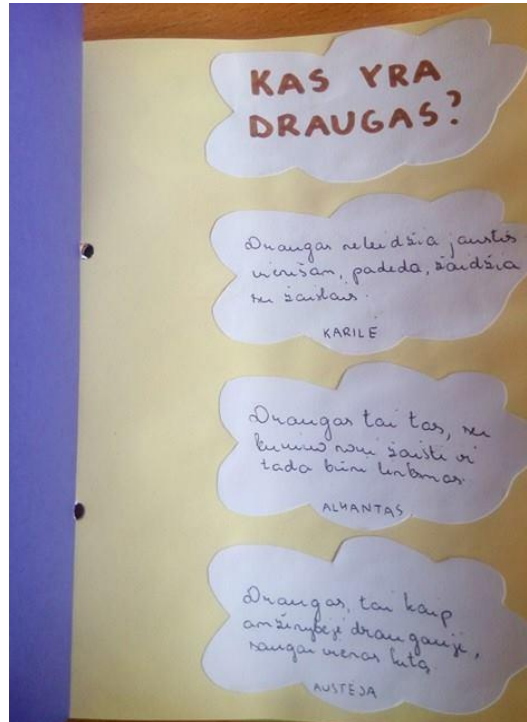 KAS YRA
DRAUGAS?
Draugas neleidžia jaustis
vienišam, padeda, žaidžia
su žaislais.
KARILĖ
Draugas tai tas, su
kuriuo nori žaisti ir
tada būni linksmas.
ALMANTAS
Draugas, tai kaip
amžinybėje draugauji,
saugai vienas kitą.
AUSTĖJA